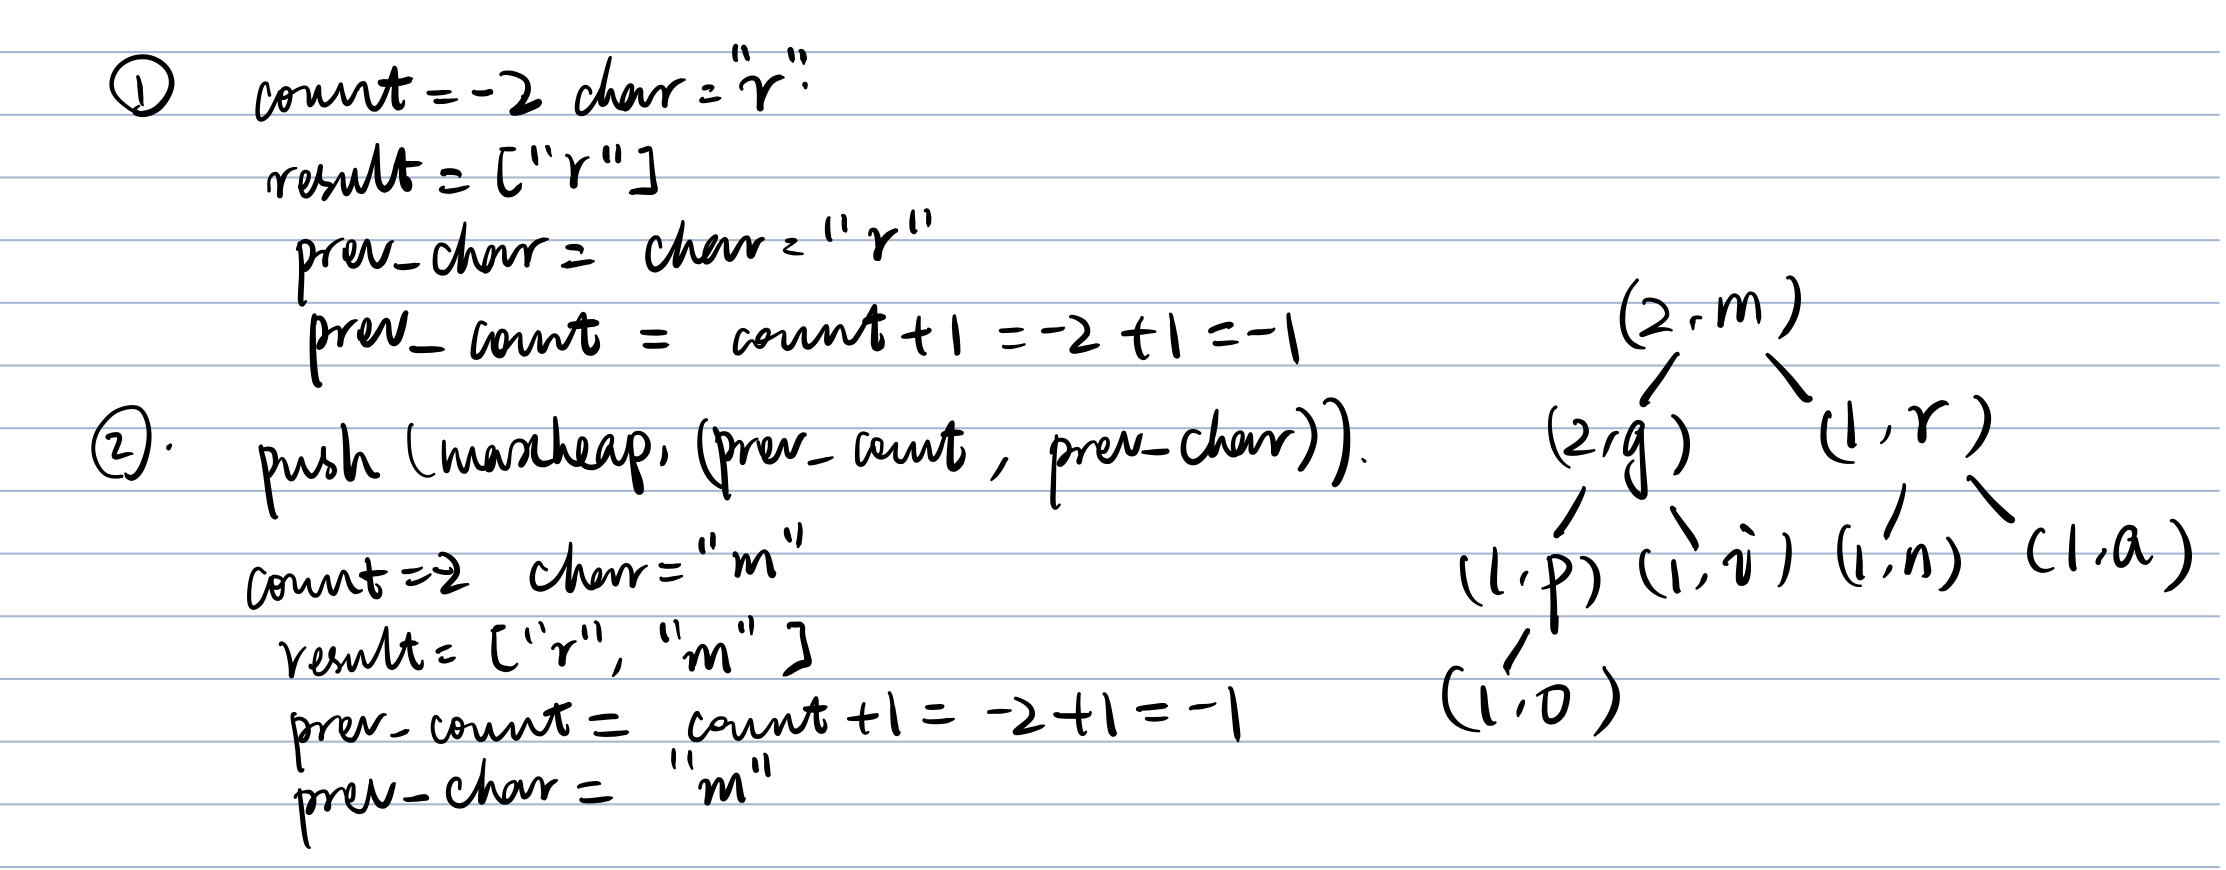 ① count = -2 char = "r"
result = ["r"]
prev_char = char = "r"
prev_count = count + 1 = -2 + 1 = -1
②. push (maxheap, (prev_count, prev-char)).
count = -2 char = "m"
result = ["r", "m"]
prev-count = count + 1 = -2 + 1 = -1
prev-char = "m"
(2,m)
(2,g) (1,r)
(1,p) (1,i) (1,n) (1,a)
(1,o)